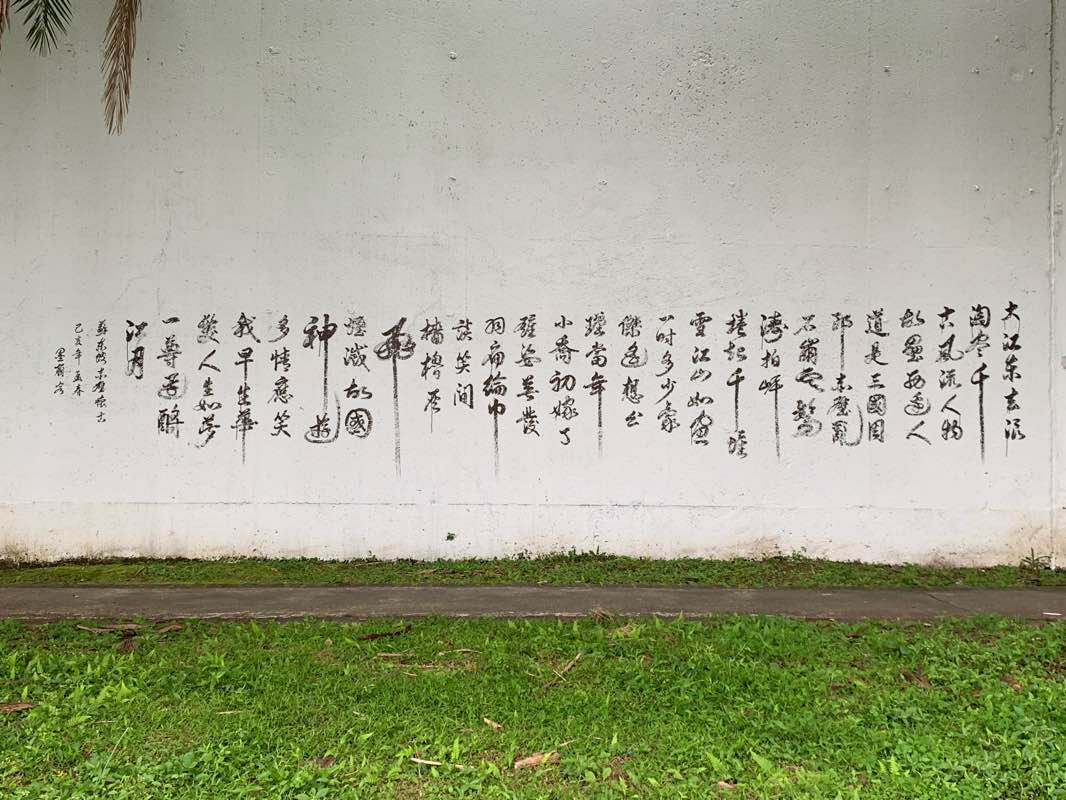 大江东去浪
淘尽千
古風流人物
故壘西邊人
道是三國周
郎赤壁亂
石崩雲驚
濤拍岸
捲起千堆
雪江山如畫
一時多少豪
傑遙想公
瑾當年
小喬初嫁了
雄姿英發
羽扇綸巾
談笑間
檣櫓灰
飛
煙滅故國
神遊
多情應笑
我早生華
髮人生如夢
一尊還酹
江月
蘇东坡赤壁懷古
己亥年孟春